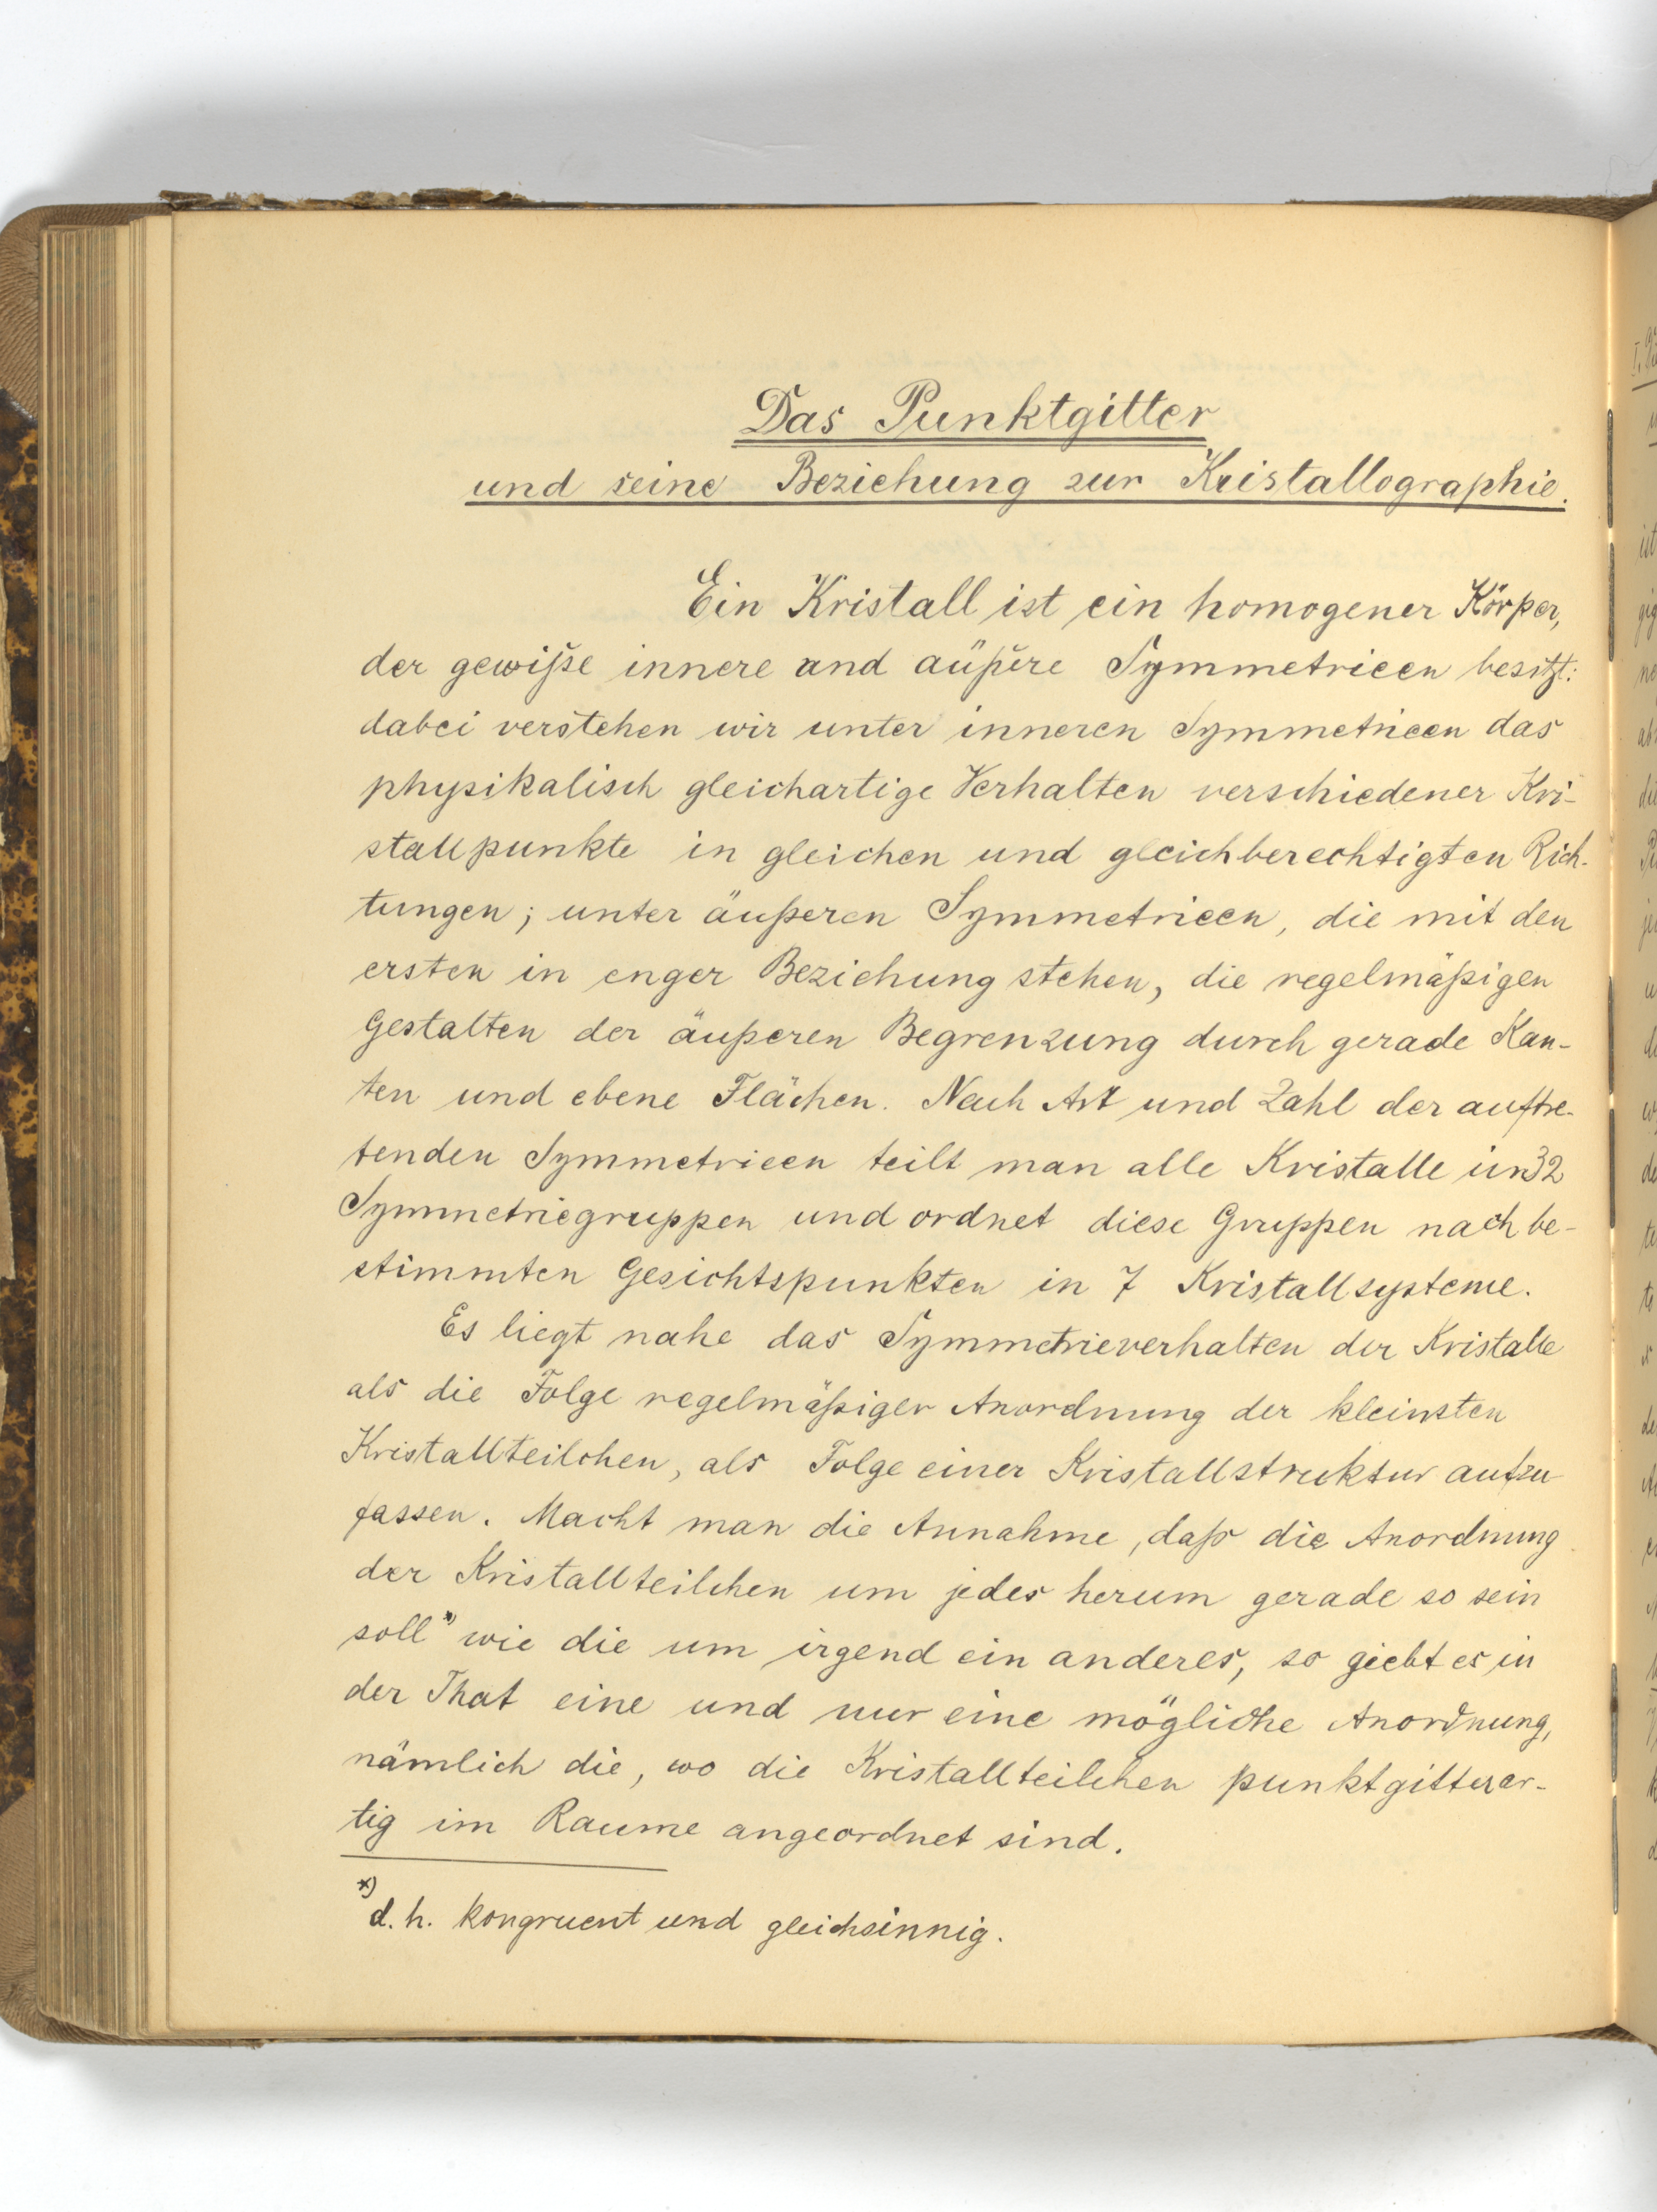 Das Punktgitter
und seine Beziehung zur Kristallographie.
Ein Kristall ist ein homogener Körper,
der gewiße innere and äußere Symmetrieen besitzt:
dabei verstehen wir unter inneren Symmetrieen das
physikalisch gleichartige Verhalten verschiedener Kri-
stallpunkte in gleichen und gleichberechtigten Rich-
tungen; unter äußeren Symmetrieen, die mit den
ersten in enger Beziehung stehen, die regelmäßigen
Gestalten der äußeren Begrenzung durch gerade Kan-
ten und ebene Flächen. Nach Art und Zahl der auftre-
tenden Symmetrieen teilt man alle Kristalle in 32
Symmetriegruppen und ordnet diese Gruppen nach be-
stimmten Gesichtspunkten in 7 Kristallsysteme.
Es liegt nahe das Symmetrieverhalten der Kristalle
als die Folge regelmäßiger Anordnung der kleinsten
Kristallteilchen, als Folge einer Kristallstruktur aufzu
fassen. Macht man die Annahme, daß die Anordnung
der Kristallteilchen um jedes herum gerade so sein
soll*) wie die um irgend ein anderes, so giebt es in
der That eine und nur eine mögliche Anordnung,
nämlich die, wo die Kristallteilchen punktgitterar-
tig im Raume angeordnet sind.
*) d. h. kongruent und gleichsinnig.